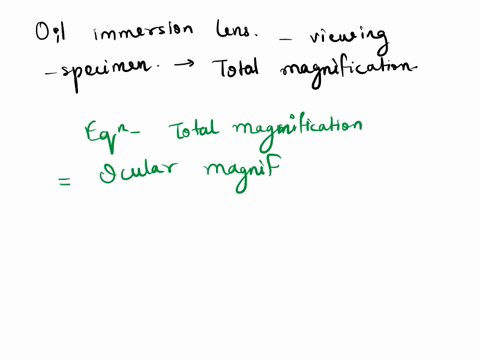 Oil immersion lens. - viewing
-specimen. → Total magnification
Eqⁿ- Total magnification
= Ocular magnif